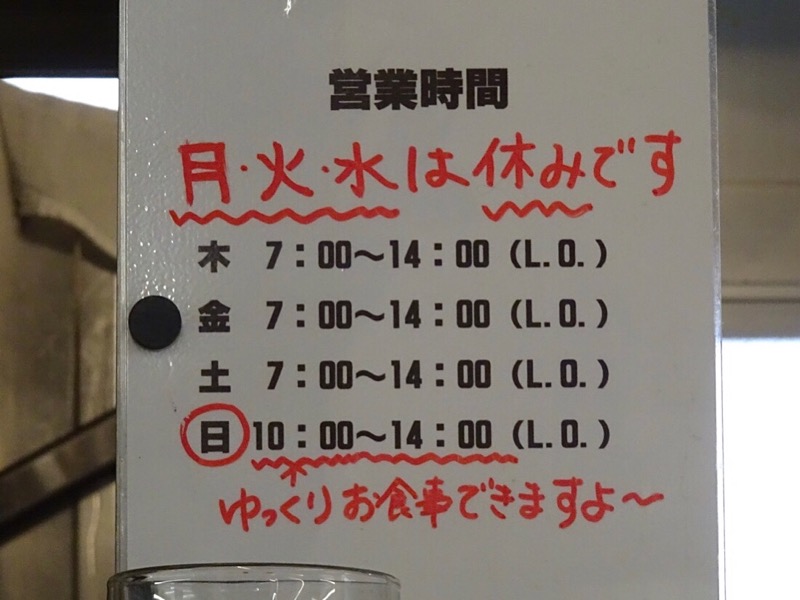 営業時間
月・火・水は休みです
木 7：00～14：00（L.O.）
金 7：00～14：00（L.O.）
土 7：00～14：00（L.O.）
日 10：00～14：00（L.O.）
ゆっくりお食事できますよ～